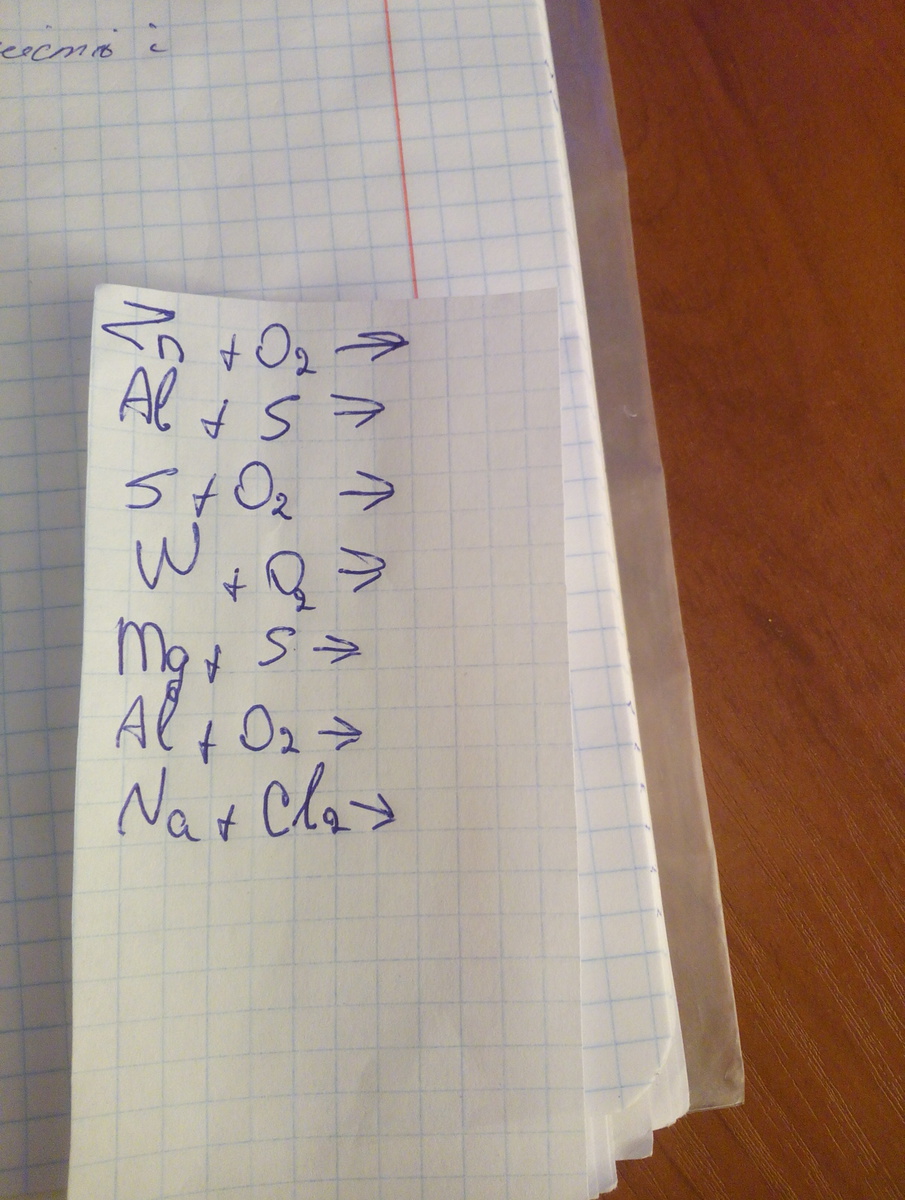 Zn + O₂ →
Al + S →
S + O₂ →
W + O₂ →
Mg + S →
Al + O₂ →
Na + Cl₂ →